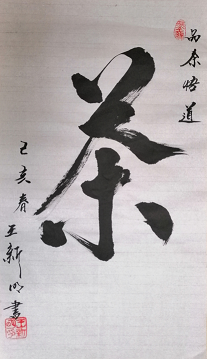 品茶悟道
茶
己亥春王新明書